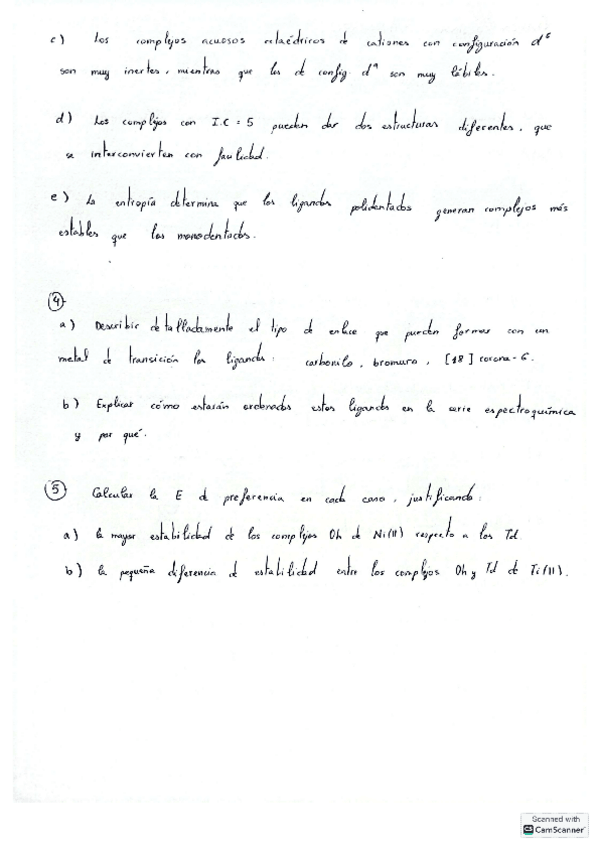 c) Los complejos acuosos octaédricos de cationes con configuración d⁶
son muy inertes, mientras que los de config. d⁹ son muy lábiles.
d) Los complejos con I.C = 5 pueden dar dos estructuras diferentes, que
se interconvierten con facilidad.
e) La entropía determina que los ligandos polidentados generan complejos más
estables que los monodentados.
4
a) Describir detalladamente el tipo de enlace que pueden formar con un
metal de transición los ligandos: carbonilo, bromuro, [18] corona-6.
b) Explicar cómo estarán ordenados estos ligandos en la serie espectroquímica
y por qué.
5 Calcular la E d preferencia en cada caso, justificando:
a) la mayor estabilidad de los complejos Oh de Ni(II) respecto a los Td.
b) la pequeña diferencia de estabilidad entre los complejos Oh y Td de Ti(II).
Scanned with
CamScanner